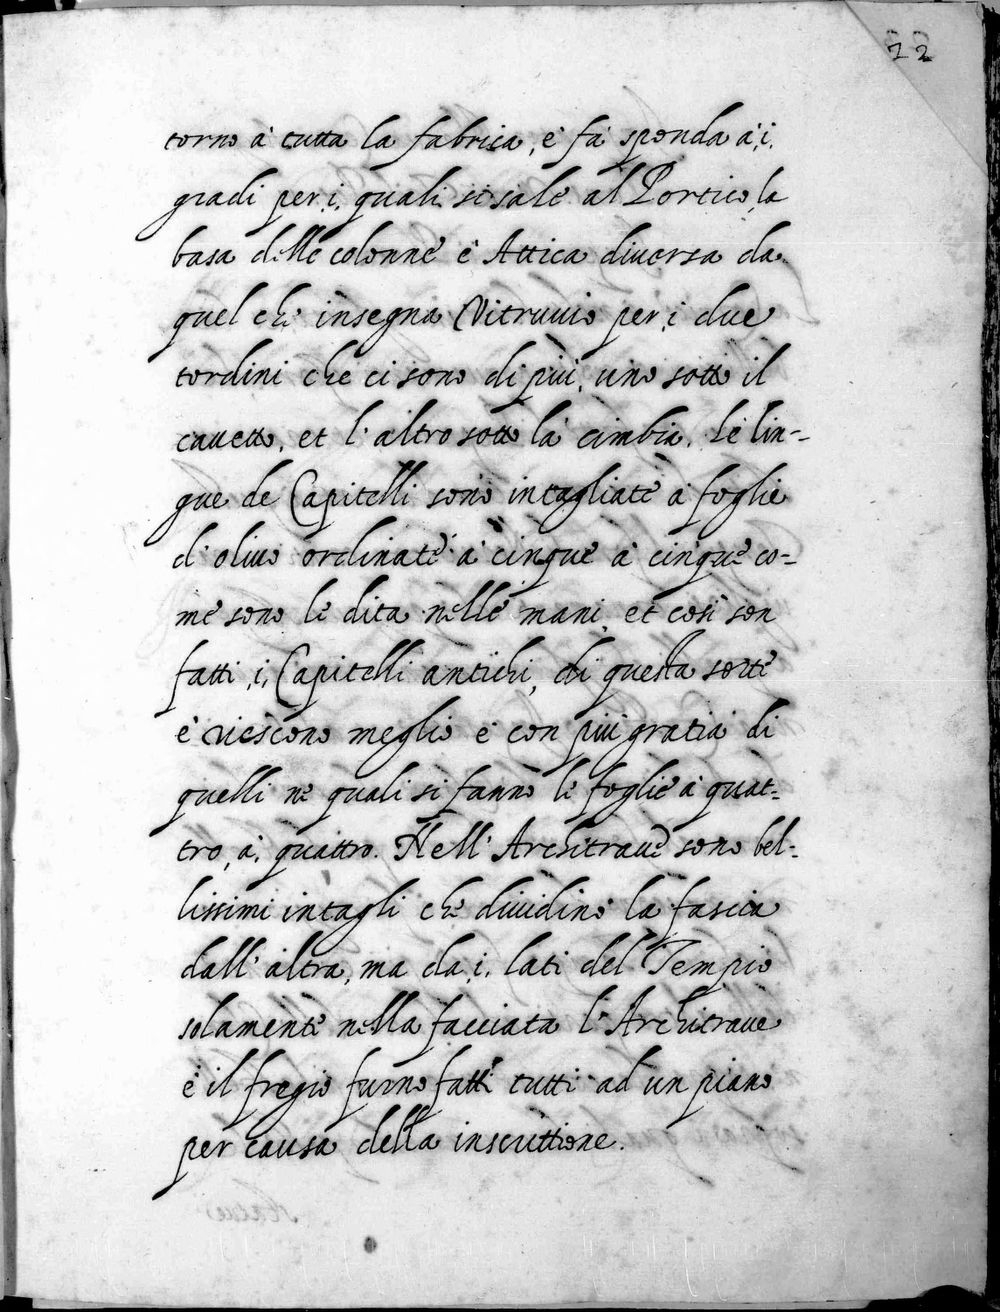 22
torno à tutta la fabrica, è fà sponda à, i,
gradi per, i, quali si sale al Portico, la
basa delle colonne è Attica diuersa da
quel che insegna Vitruuio per, i due
tordini che ci sono di più, uno sotto il
cauetto, et l'altro sotto la cimbia. Le lin-
gue de Capitelli sono intagliate à foglie
d'oliuo ordinate à cinque à cinque co-
me sono le dita nelle mani, et così son
fatti, i, Capitelli antichi, di questa sorte
è riescono meglio e con più gratia di
quelli ne quali si fanno le foglie à quat-
tro, à, quattro. Nell'Architraue sono bel-
lissimi intagli che diuidino la fascia
dall'altra, ma da, i, lati del Tempio
solamente nella facciata l'Architraue
è il fregio furno fatti tutti ad un piano
per causa della inscrittione.